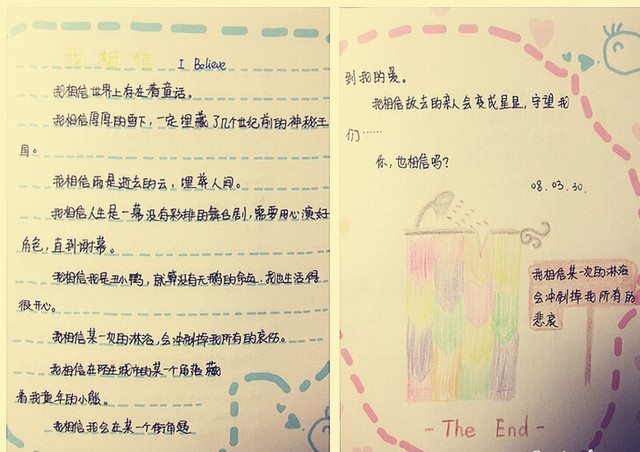 我相信 I Believe
我相信世界上存在着童话。
我相信厚厚的雪下,一定埋藏了几个世纪前的神秘王
国。
我相信雨是逝去的云,埋葬人间。
我相信人生是一幕没有彩排的舞台剧,需要用心演好
角色,直到谢幕。
我相信我是丑小鸭,就算没有天鹅的命运,我也生活得
很开心。
我相信某一次的淋浴,会冲刷掉我所有的哀伤。
我相信在陌生城市的某一个角落藏
着我童年的小熊。
我相信我会在某一个街角遇
到我的爱。
我相信故去的亲人会变成星星,守望我
们……
你,也相信吗?
08.03.30.
我相信某一次的淋浴
会冲刷掉我所有的
悲哀
- The End -